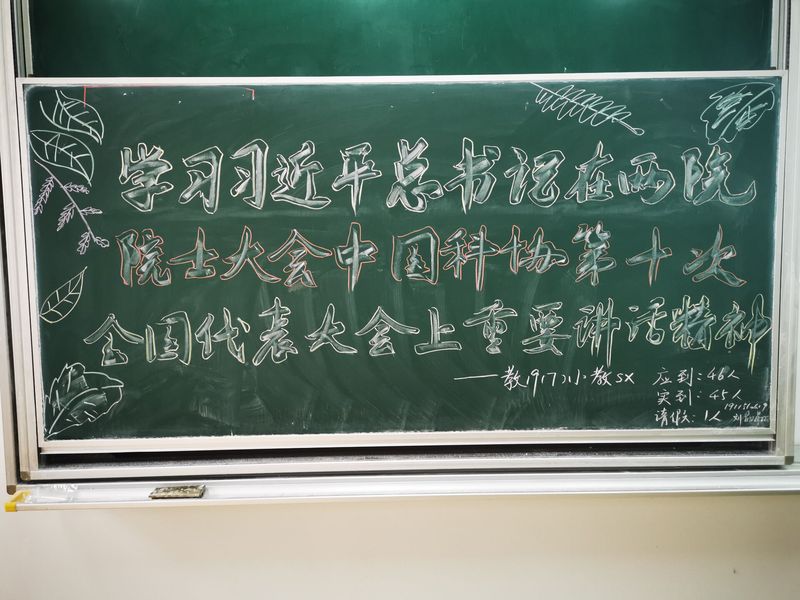 学习习近平总书记在两院
院士大会中国科协第十次
全国代表大会上重要讲话精神
——教1917小教sx 应到:46人
实到:45人
请假:1人